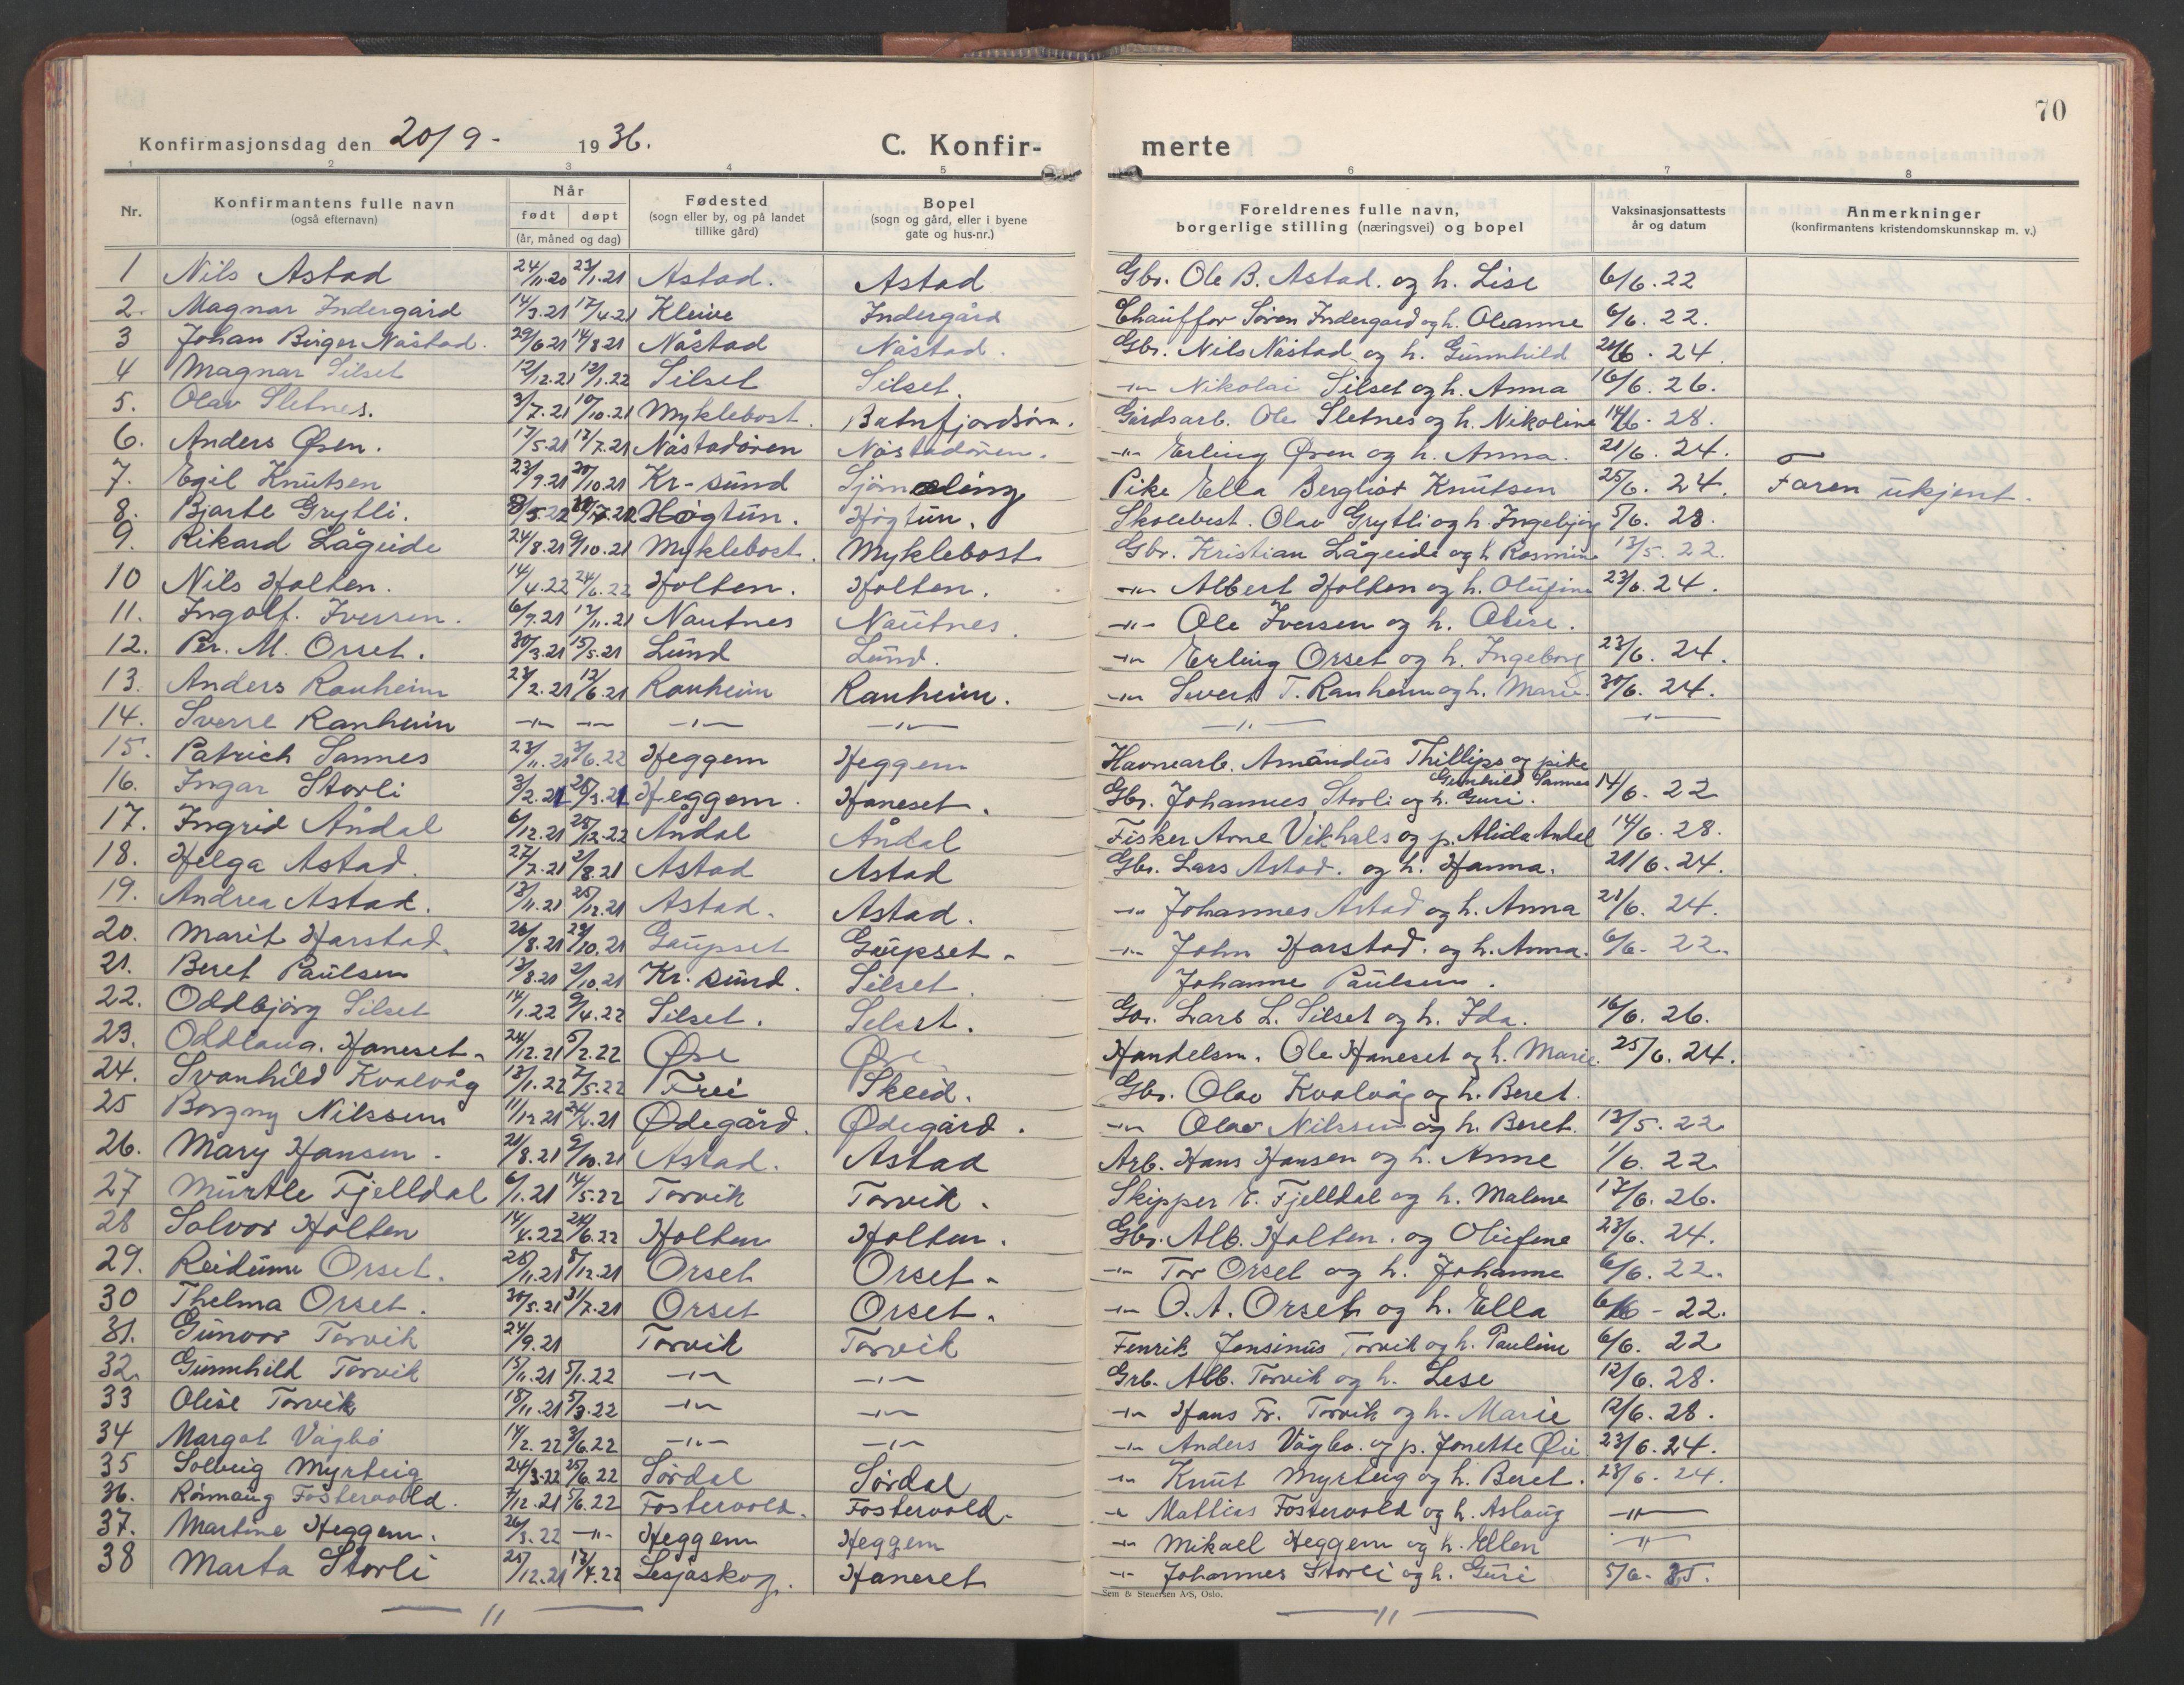 70
Konfirmasjonsdag den 20/9 - 1936. C. Konfir- merte
1 2 3 4 5 6 7 8
Nr. Konfirmantens fulle navn (også efternavn) Når født døpt (år, måned og dag) Fødested (sogn eller by, og på landet tillike gård) Bopel (sogn og gård, eller i byene gate og hus-nr.) Foreldrenes fulle navn, borgerlige stilling (næringsvei) og bopel Vaksinasjonsattests år og datum Anmerkninger (konfirmantens kristendomskunnskap m. v.)
1 Nils Astad 24/11.20 23/1.21 Astad. Astad Gbr. Ole B. Astad. og h. Lise 6/6.22
2. Magnar Indergård 14/3.21 17/4.21 Kleive Indergård Chauffør Søren Indergaard og h. Oleanne 6/6. 22.
3 Johan Birger Nåstad. 29/6 21 14/8 21 Nåstad Nåstad. Gbr. Nils Nåstad og h. Gunnhild 21/6. 24.
4 Magnar Silset 12/12.21 12/1.22 Silset Silset. -"- Nikolai Silset og h. Anna 16/6. 26.
5. Olav Sletnes. 3/7.21 10/10.21 Myklebost. Batnfjordsøra. Gårdsarb. Ole Sletnes og h. Nikoline 14/6. 28.
6. Anders Øren. 17/5.21 17/7.21 Nåstadøren Nåstadøren. -"- Erling Øren og h. Anna. 21/6. 24.
7. Egil Knutsen 23/9.21 20/10.21 Kr-sund Sjømæling Pike Ella Bergliot Knutsen 25/6. 24. Faren ukjent.
8. Bjarte Grytli. 8/5.22 /7.22 Høgtun. Høgtun. Skolebest. Olav Grytli og h. Ingebjørg 5/6. 28.
9. Rikard Lågeide 24/8.21 9/10.21 Myklebost. Myklebost Gbr. Kristian Lågeide og h Rasmine 13/5. 22.
10 Nils Holten. 14/4.22 24/6.22 Holten. Holten. -"- Albert Holten og h. Olufine 23/6.24.
11. Ingolf. Iversen. 6/9.21 17/11.21 Nautnes Nautnes. -"- Ole Iversen og h. Olise.
12. Per. M. Orset. 30/3.21 15/5.21 Lund Lund. -"- Erling Orset og h. Ingeborg 23/6. 24.
13. Anders Ranheim 27/2.21 12/6.21 Ranheim Ranheim. -"- Sivert T. Ranheim og h. Marie. 30/6. 24.
14. Sverre Ranheim -"- -"- -"- -"- -"- -"-
15. Patrick Sannes 23/11.21 3/6.22 Heggem Heggem Havnearb. Amandus Thillips og pike Gunhild Sannes
16. Ingar Storli 3/2.21 28/3.21 Heggem. Haneset. Gbr. Johannes Storli og h. Guri. 14/6. 22
17. Ingrid Åndal 6/12.21 28/12.22 Åndal Åndal Fisker Arne Vikhals og p. Alida Åndal 14/6. 28.
18. Helga Astad. 27/7.21 2/8.21 Astad Astad Gbr. Lars Astad. og h. Hanna. 21/6.24.
19. Andrea Astad. 13/11.21 25/12.21 Astad. Astad. -"- Johannes Astad og h. Anna 21/6. 24.
20. Marit Harstad. 26/8.21 23/10.21 Gaupset Gaupset - -"- John Harstad. og h. Anna. 6/6. 22.
21. Beret Paulsen 13/8.21 2/10.21 Kr. sund. Silset. Johanne Paulsen.
22. Oddbjørg Silset 14/1.22 9/4.22 Silset. Silset. Gbr. Lars L. Silset og h. Ida. 16/6. 26.
23. Oddlaug. Haneset. 24/12.21 5/2.22 Øre Øre Handelsm. Ole Haneset og h. Marie. 25/6.24.
24. Svanhild Kvalvåg 13/1.22 7/5.22 Frei Skeid. Gbr. Olav Kvalvåg og h. Beret.
25 Borgny Nilssen 11/12.21 24/4.21 Ødegård. Ødegård. -"- Olav Nilssen og h. Beret. 13/5.22
26. Mary Hansen. 21/8.21 9/10.21 Astad. Astad Arb. Hans Hansen og h. Anne 1/6. 22.
27 Murtle Fjelldal 6/1.21 14/5.22 Torvik Torvik. Skipper E. Fjelldal og h. Malene 17/6. 26.
28 Solvor Holten 14/4.22 24/6.22 Holten Holten. Gbr. Alb. Holten. og Olufine 23/6. 24.
29. Reidunn Orset. 28/11.21 8/12.21 Orset Orset. -"- Tor Orset og h. Johanne 6/6. 22.
30 Thelma Orset. 30/5.21 31/7.21 Orset Orset. -"- O. A. Orset og h. Ella 6/6 - 22.
31. Gunvor Torvik 24/9.21 Torvik Torvik Fenrik Jensinus Torvik og h. Pauline 6/6. 22
32. Gunnhild Torvik 15/11.21 5/1.22 -"- -"- Grb. Alb. Torvik og h. Lese 12/6.28.
33 Olise Torvik 18/11.21 5/3.22 -"- -"- -"- Hans Fr. Torvik og h. Marie 12/6.28.
34 Margot Vågbø 14/2.22 3/6.22 -"- -"- -"- Anders Vågbø. og p. Jonette Øie 23/6.24.
35 Solveig Myrteig 24/3.22 25/6.22 Sørdal Sørdal -"- Knut Myrteig og h. Beret. 23/6. 24.
36. Rønnaug Fostervold. 7/12.21 5/6.22 Fostervold. Fostervold. -"- Mattias Fostervold og h. Aslaug -"-
37. Martine Heggem. 26/3.22 -"- Heggem Heggem -"- Mikael Heggem og h. Ellen -"-
38 Marta Storli 25/12.21 17/4.22 Lesjaskog. Haneset -"- Johannes Storli og h. Guri 5/6. 35.
Sem & Stenersen A/S, Oslo.
— " — — " —